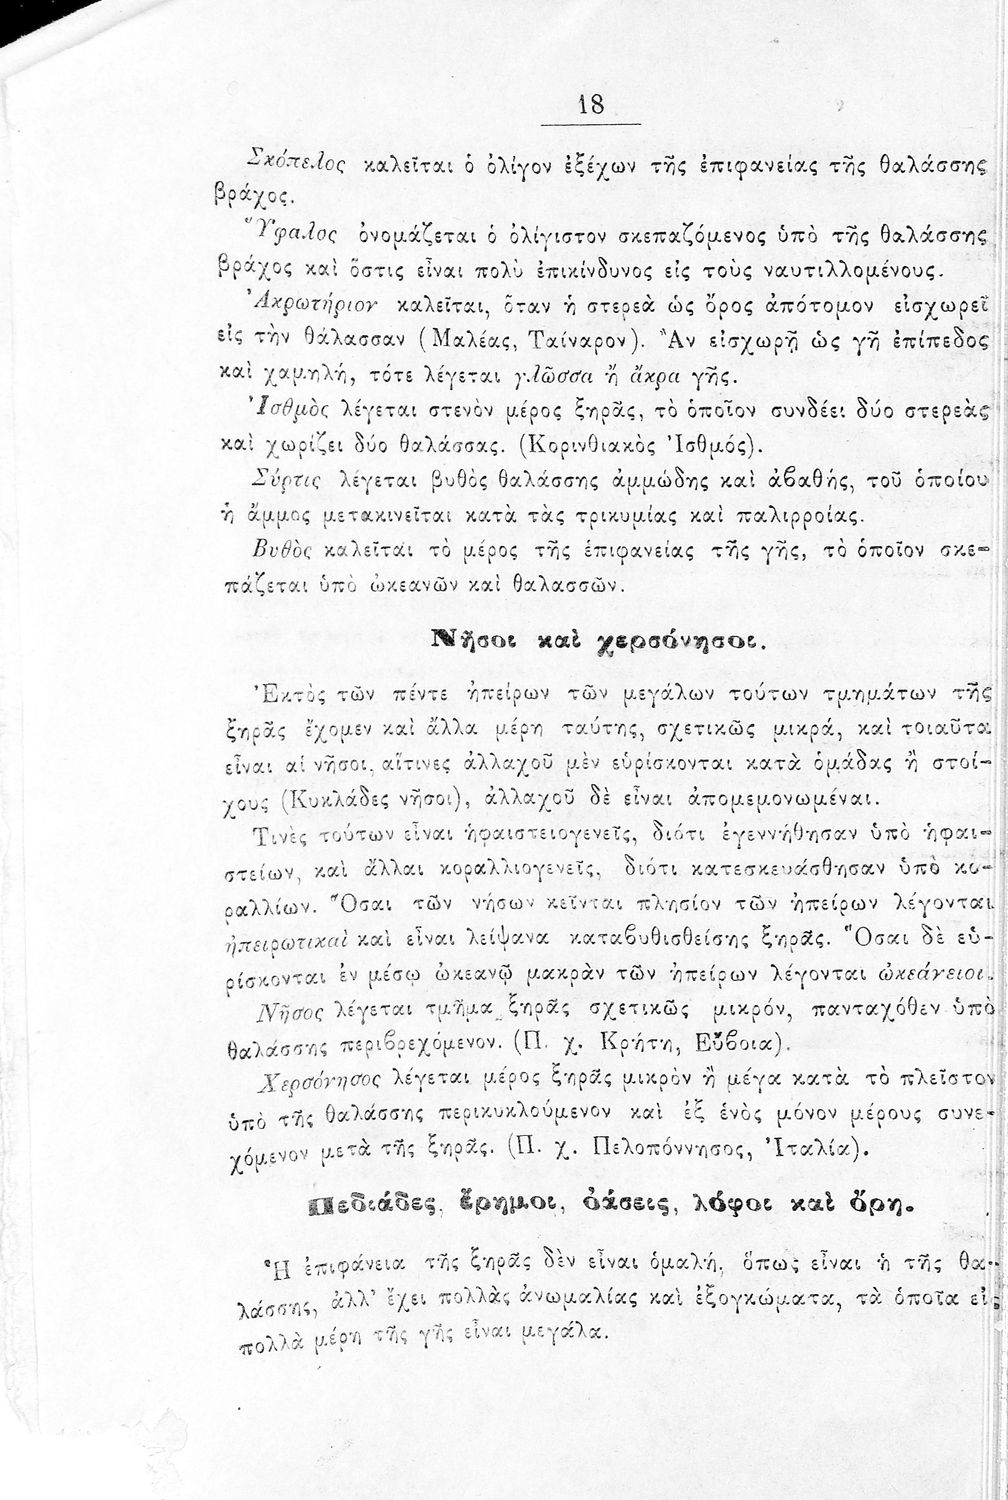 18
Σκόπελος καλεῖται ὁ ὀλίγον ἐξέχων τῆς ἐπιφανείας τῆς θαλάσσης
βράχος.
Ὕφαλος ὀνομάζεται ὁ ὀλίγιστον σκεπαζόμενος ὑπὸ τῆς θαλάσσης
βράχος καὶ ὅστις εἶναι πολὺ ἐπικίνδυνος εἰς τοὺς ναυτιλλομένους.
Ἀκρωτήριον καλεῖται, ὅταν ἡ στερεὰ ὡς ὄρος ἀπότομον εἰσχωρεῖ
εἰς τὴν θάλασσαν (Μαλέας, Ταίναρον). Ἂν εἰσχωρῇ ὡς γῆ ἐπίπεδος
καὶ χαμηλή, τότε λέγεται γλῶσσα ἢ ἄκρα γῆς.
Ἰσθμὸς λέγεται στενὸν μέρος ξηρᾶς, τὸ ὁποῖον συνδέει δύο στερεὰς
καὶ χωρίζει δύο θαλάσσας. (Κορινθιακὸς Ἰσθμός).
Σύρτις λέγεται βυθὸς θαλάσσης ἀμμώδης καὶ ἀβαθής, τοῦ ὁποίου
ἡ ἄμμος μετακινεῖται κατὰ τὰς τρικυμίας καὶ παλιρροίας.
Βυθὸς καλεῖται τὸ μέρος τῆς ἐπιφανείας τῆς γῆς, τὸ ὁποῖον σκε-
πάζεται ὑπὸ ὠκεανῶν καὶ θαλασσῶν.
Νῆσοι καὶ χερσόνησοι.
Ἐκτὸς τῶν πέντε ἠπείρων τῶν μεγάλων τούτων τμημάτων τῆς
ξηρᾶς ἔχομεν καὶ ἄλλα μέρη ταύτης, σχετικῶς μικρά, καὶ τοιαῦτα
εἶναι αἱ νῆσοι, αἵτινες ἀλλαχοῦ μὲν εὑρίσκονται κατὰ ὁμάδας ἢ στοί-
χους (Κυκλάδες νῆσοι), ἀλλαχοῦ δὲ εἶναι ἀπομεμονωμέναι.
Τινὲς τούτων εἶναι ἡφαιστειογενεῖς, διότι ἐγεννήθησαν ὑπὸ ἡφαι-
στείων, καὶ ἄλλαι κοραλλιογενεῖς, διότι κατεσκευάσθησαν ὑπὸ κο-
ραλλίων. Ὅσαι τῶν νήσων κεῖνται πλησίον τῶν ἠπείρων λέγονται
ἠπειρωτικαὶ καὶ εἶναι λείψανα καταβυθισθείσης ξηρᾶς. Ὅσαι δὲ εὑ-
ρίσκονται ἐν μέσῳ ὠκεανῷ μακρὰν τῶν ἠπείρων λέγονται ὠκεάνειοι.
Νῆσος λέγεται τμῆμα ξηρᾶς σχετικῶς μικρόν, πανταχόθεν ὑπὸ
θαλάσσης περιβρεχόμενον. (Π. χ. Κρήτη, Εὔβοια).
Χερσόνησος λέγεται μέρος ξηρᾶς μικρὸν ἢ μέγα κατὰ τὸ πλεῖστον
ὑπὸ τῆς θαλάσσης περικυκλούμενον καὶ ἐξ ἑνὸς μόνον μέρους συνε-
χόμενον μετὰ τῆς ξηρᾶς. (Π. χ. Πελοπόννησος, Ἰταλία).
Πεδιάδες, ἔρημοι, ὀάσεις, λόφοι καὶ ὄρη.
Ἡ ἐπιφάνεια τῆς ξηρᾶς δὲν εἶναι ὁμαλή, ὅπως εἶναι ἡ τῆς θα-
λάσσης, ἀλλ' ἔχει πολλὰς ἀνωμαλίας καὶ ἐξογκώματα, τὰ ὁποῖα εἰς
πολλὰ μέρη τῆς γῆς εἶναι μεγάλα.